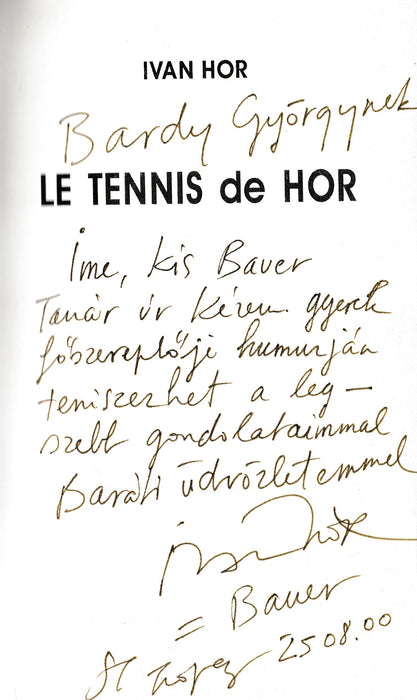 IVAN HOR
Bardy Györgynek
LE TENNIS de HOR
Íme, kis Bauer
Tanár úr kérem gyerek
főszereplője humorján
teniszezhet a leg-
szebb gondolataimmal
Baráti üdvözletemmel
= Bauer
St Tropez 25 08.00